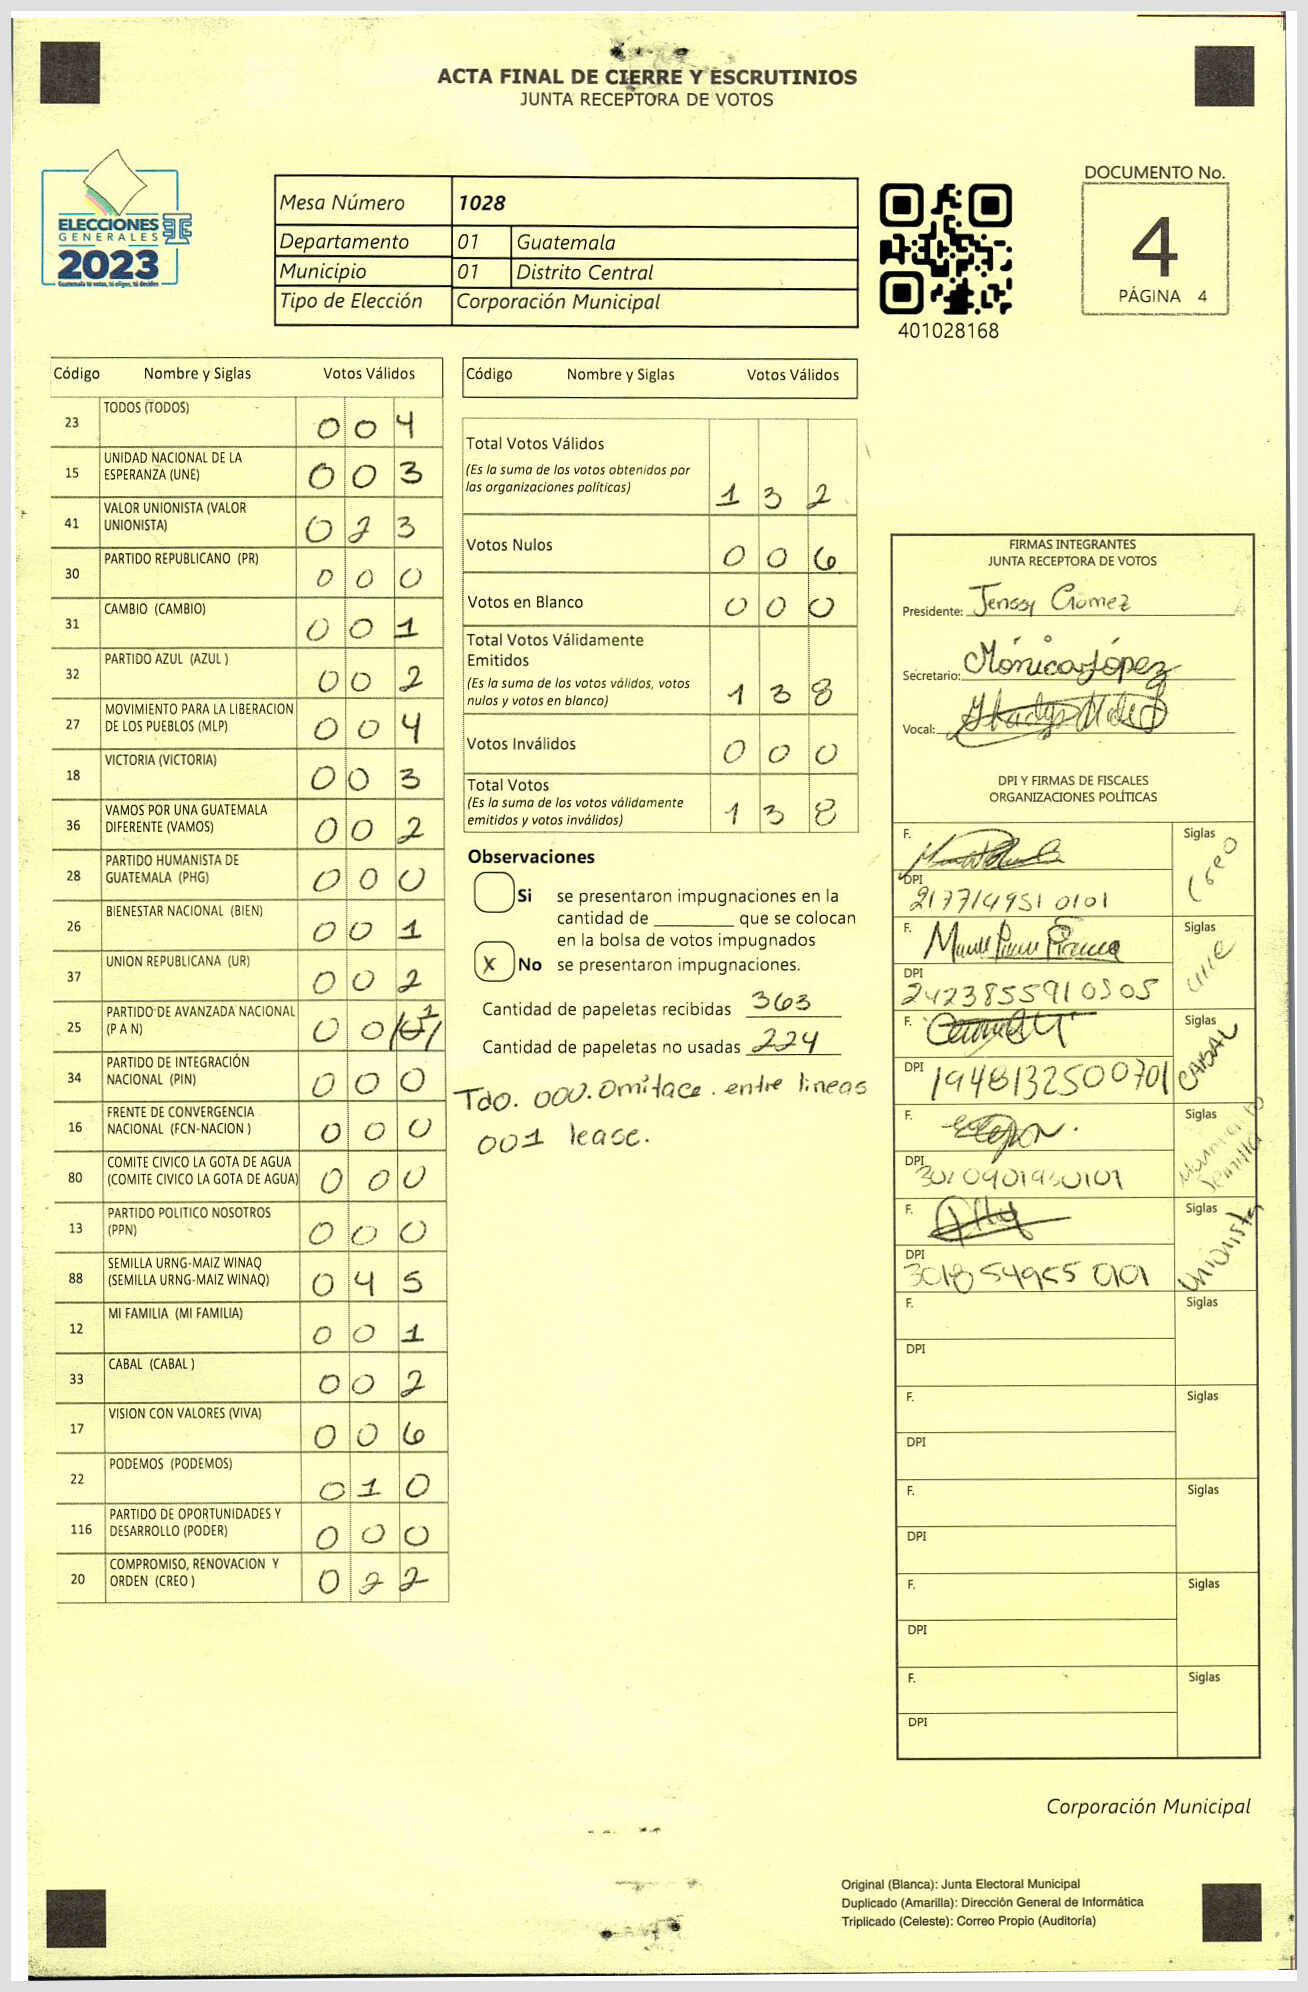 ACTA FINAL DE CIERRE Y ESCRUTINIOS
JUNTA RECEPTORA DE VOTOS
ELECCIONES
GENERALES
2023
Guatemala tú votas, tú eliges, tú decides
Mesa Número 1028
Departamento 01 Guatemala
Municipio 01 Distrito Central
Tipo de Elección Corporación Municipal
401028168
DOCUMENTO No.
4
PÁGINA 4
Código Nombre y Siglas Votos Válidos
23 TODOS (TODOS) 0 0 4
15 UNIDAD NACIONAL DE LA ESPERANZA (UNE) 0 0 3
41 VALOR UNIONISTA (VALOR UNIONISTA) 0 2 3
30 PARTIDO REPUBLICANO (PR) 0 0 0
31 CAMBIO (CAMBIO) 0 0 1
32 PARTIDO AZUL (AZUL ) 0 0 2
27 MOVIMIENTO PARA LA LIBERACION DE LOS PUEBLOS (MLP) 0 0 4
18 VICTORIA (VICTORIA) 0 0 3
36 VAMOS POR UNA GUATEMALA DIFERENTE (VAMOS) 0 0 2
28 PARTIDO HUMANISTA DE GUATEMALA (PHG) 0 0 0
26 BIENESTAR NACIONAL (BIEN) 0 0 1
37 UNION REPUBLICANA (UR) 0 0 2
25 PARTIDO DE AVANZADA NACIONAL (P A N) 0 0 /0/ 1
34 PARTIDO DE INTEGRACIÓN NACIONAL (PIN) 0 0 0
16 FRENTE DE CONVERGENCIA NACIONAL (FCN-NACION ) 0 0 0
80 COMITE CIVICO LA GOTA DE AGUA (COMITE CIVICO LA GOTA DE AGUA) 0 0 0
13 PARTIDO POLITICO NOSOTROS (PPN) 0 0 0
88 SEMILLA URNG-MAIZ WINAQ (SEMILLA URNG-MAIZ WINAQ) 0 4 5
12 MI FAMILIA (MI FAMILIA) 0 0 1
33 CABAL (CABAL ) 0 0 2
17 VISION CON VALORES (VIVA) 0 0 6
22 PODEMOS (PODEMOS) 0 1 0
116 PARTIDO DE OPORTUNIDADES Y DESARROLLO (PODER) 0 0 0
20 COMPROMISO, RENOVACION Y ORDEN (CREO ) 0 2 2
Código Nombre y Siglas Votos Válidos
Total Votos Válidos
(Es la suma de los votos obtenidos por
las organizaciones políticas) 1 3 2
Votos Nulos 0 0 6
Votos en Blanco 0 0 0
Total Votos Válidamente
Emitidos
(Es la suma de los votos válidos, votos
nulos y votos en blanco) 1 3 8
Votos Inválidos 0 0 0
Total Votos
(Es la suma de los votos válidamente
emitidos y votos inválidos) 1 3 8
Observaciones
Si se presentaron impugnaciones en la
cantidad de ________ que se colocan
en la bolsa de votos impugnados
X No se presentaron impugnaciones.
Cantidad de papeletas recibidas 363
Cantidad de papeletas no usadas 224
Tdo. 000. Omitace. entre lineas
001 lease.
FIRMAS INTEGRANTES
JUNTA RECEPTORA DE VOTOS
Presidente: Jenssy Gómez
Secretario: Mónica López
Vocal: Gladys
DPI Y FIRMAS DE FISCALES
ORGANIZACIONES POLÍTICAS
F. Siglas Creo
DPI 217714951 0101
F. Siglas UNE
DPI 2423855910305
F. Siglas CABAL
DPI 1948132500701
F. Siglas Semilla
DPI 3020901930101
F. Siglas Unionista
DPI 301854955 0101
F. Siglas
DPI
F. Siglas
DPI
F. Siglas
DPI
F. Siglas
DPI
F. Siglas
DPI
Corporación Municipal
Original (Blanca): Junta Electoral Municipal
Duplicado (Amarilla): Dirección General de Informática
Triplicado (Celeste): Correo Propio (Auditoría)